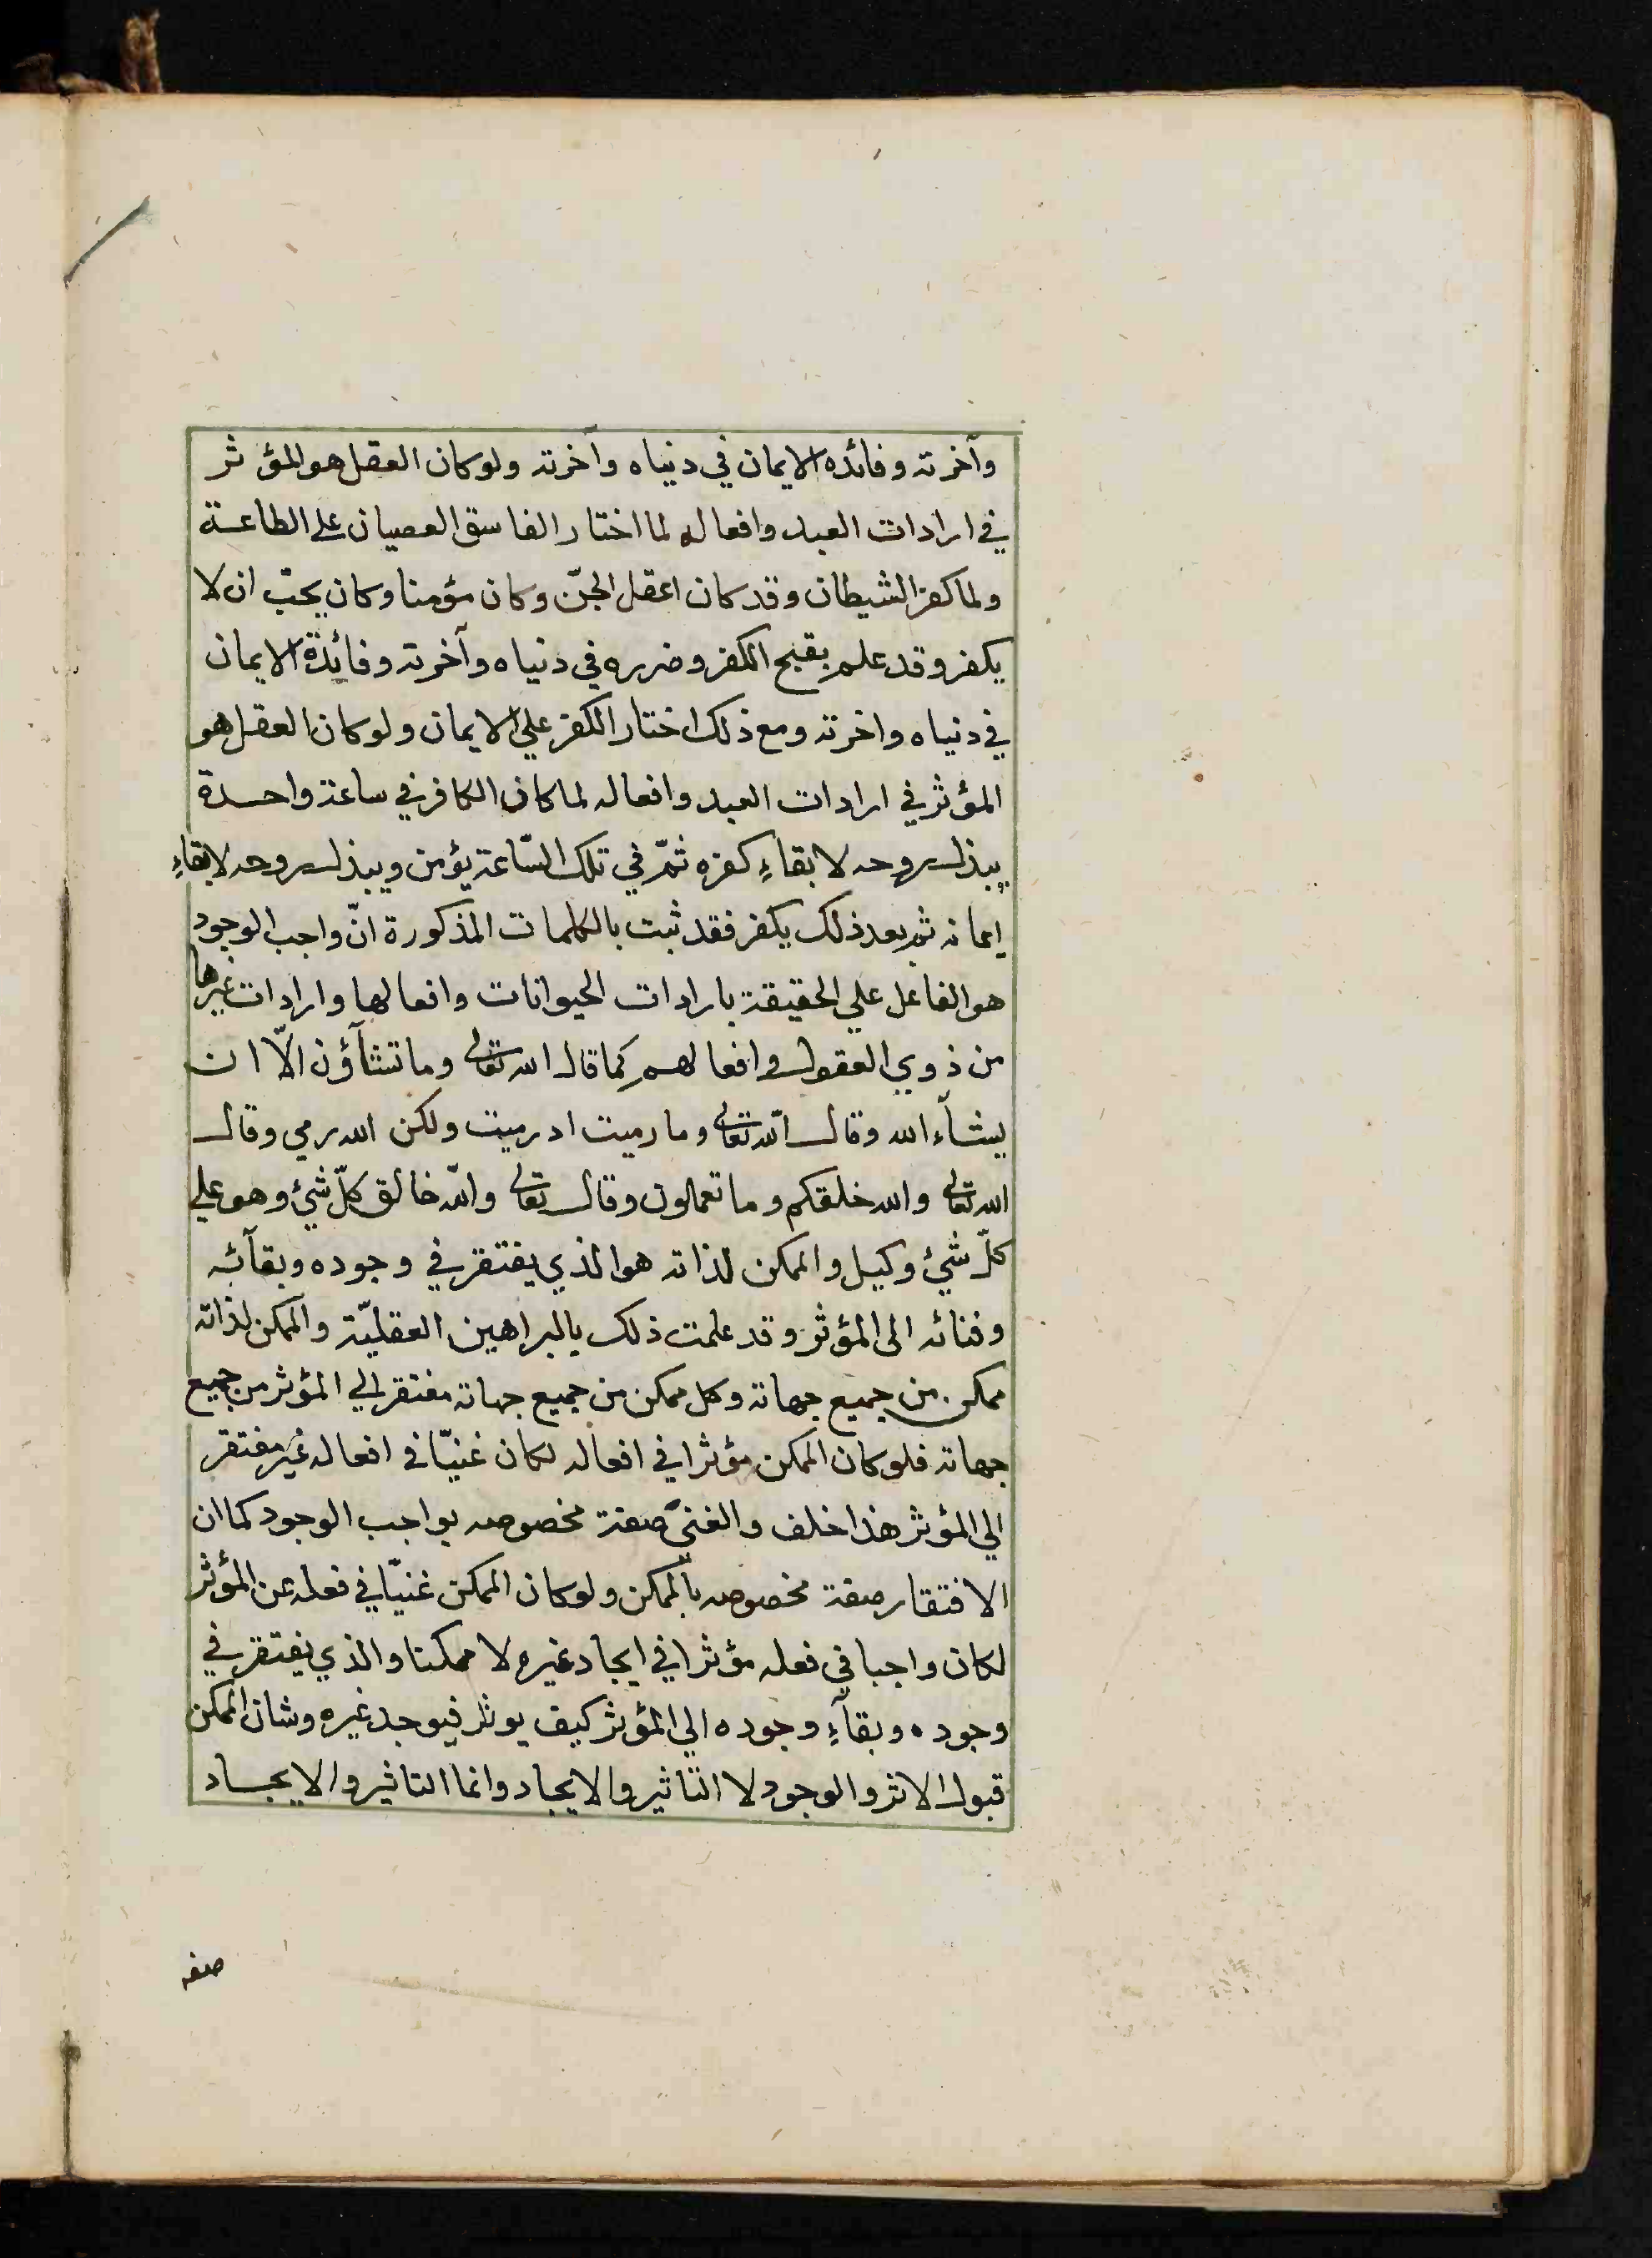 وآخرته وفائده الايمان في دنياه وآخرته ولو كان العقل هو المؤثر
في ارادات العبد وافعاله لما اختار الفاسق العصيان على الطاعة
ولما كفر الشيطان وقد كان اعقل الجنّ وكان مؤمنا وكان يحبّ ان لا
يكفر وقد علم بقبح الكفر وضرره في دنياه وآخرته وفائدة الايمان
في دنياه واخرته ومع ذلك اختار الكفر علي الايمان ولو كان العقل هو
المؤثر في ارادات العبد وافعاله لما كان الكافر في ساعة واحدة
يبذل روحه لابقاءِ كفره ثمّ في تلك السّاعة يؤمن ويبذل روحه لابقاءِ
ايمانه ثم بعد ذلك يكفر فقد ثبت بالكلمات المذكورة انّ واجب الوجود
هو الفاعل علي الحقيقة بارادات الحيوانات وافعالها وارادات غيرها
من ذوي العقول وافعالهم كما قال الله تعالى وما تشآؤن الّا ان
يشآء الله وقال الله تعالى وما رميت اد رميت ولكن الله رمي وقال
الله تعالى والله خلقكم وما تعملون وقال تعالى والله خالق كلّ شيئ وهو علي
كلّ شيئ وكيل والممكن لذاته هو الذي يفتقر في وجوده وبقآئه
وفنائه الى المؤثر وقد علمت ذلك بالبراهين العقليّة والممكن لذاته
ممكن من جميع جهاته وكل ممكن من جميع جهاته مفتقر الي المؤثر من جميع
جهاته فلو كان الممكن مؤثرا في افعاله لكان غنيّا في افعاله غير مفتقر
الي المؤثر هذا خلف والغنيّ صفة مخصوصه بواجب الوجود كما ان
الافتقار صفة مخصوصه بالممكن ولو كان الممكن غنيّا في فعله عن المؤثر
لكان واجبا في فعله مؤثرا في ايجاد غيره لا ممكنا والذي يفتقر في
وجوده وبقآءِ وجوده الي المؤثر كيف يوثر فيوجد غيره وشان الممكن
قبول الاثر والوجود لا التاثير والايجاد وانما التاثير والايجاد
صفه